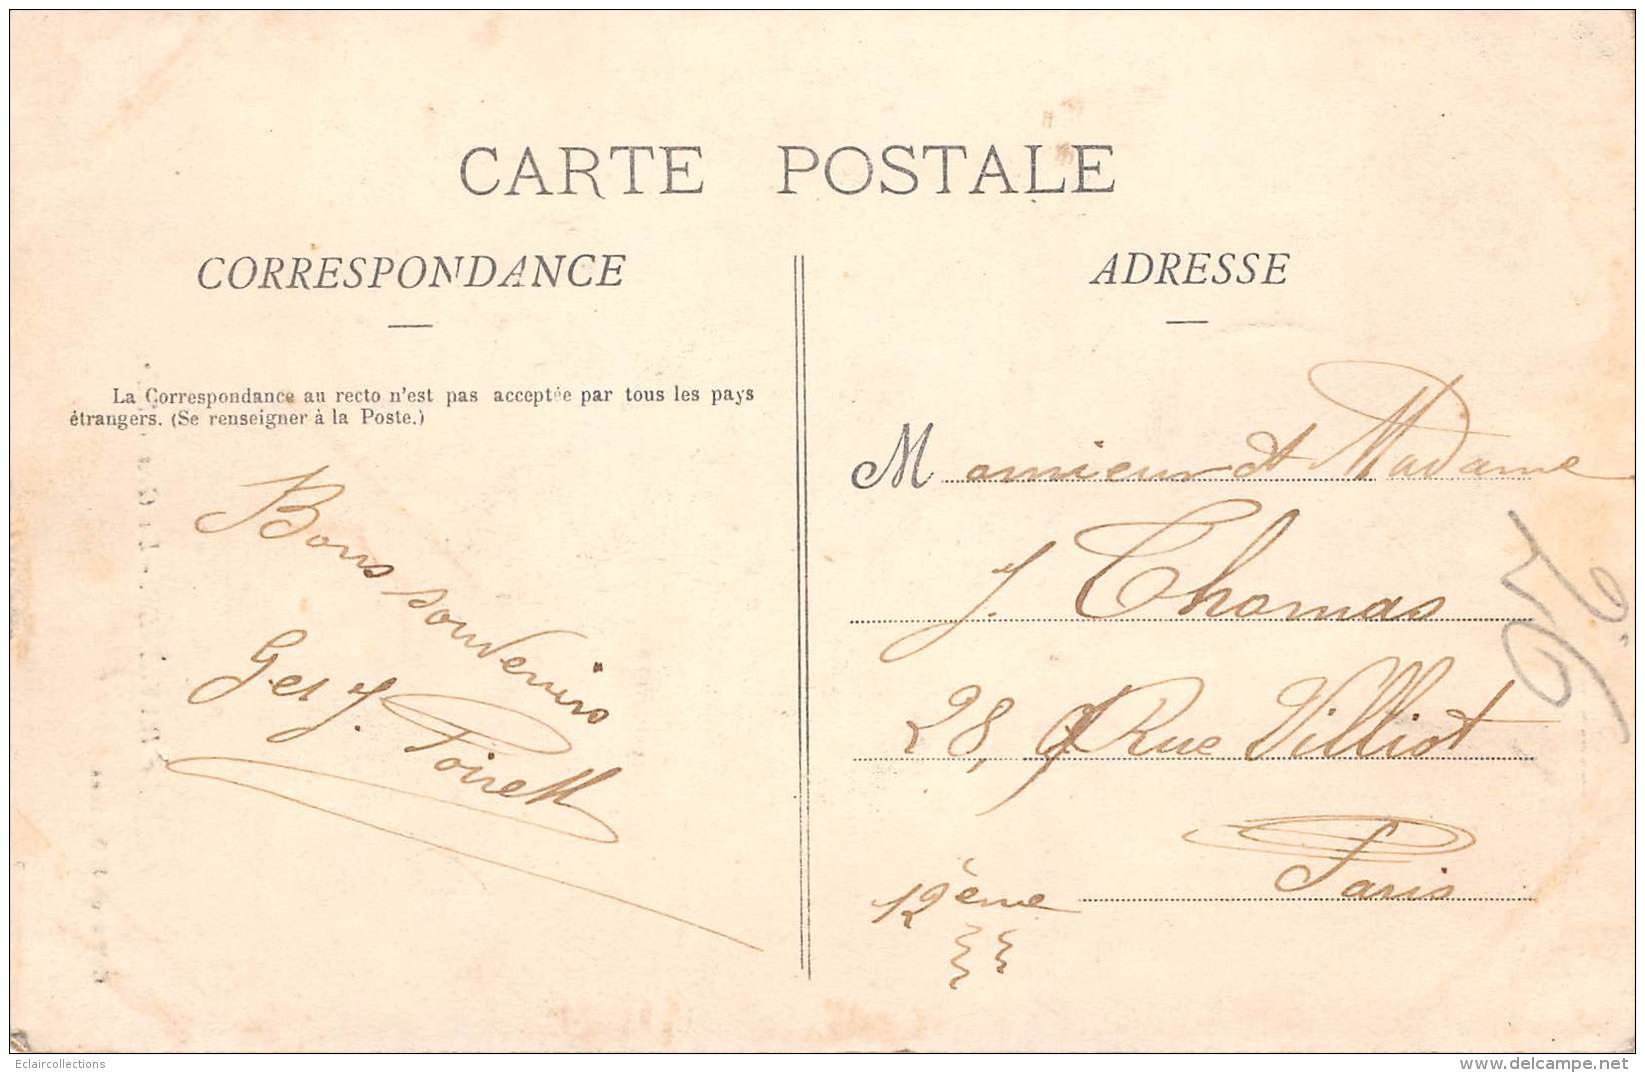 CARTE POSTALE
CORRESPONDANCE
La Correspondance au recto n'est pas acceptée par tous les pays
étrangers. (Se renseigner à la Poste.)
Bons souvenirs
G et J. Poirett
ADRESSE
Monsieur et Madame
J. Thomas
28, Rue Villiot
Paris
12ème
Eclaircollections
www.delcampe.net